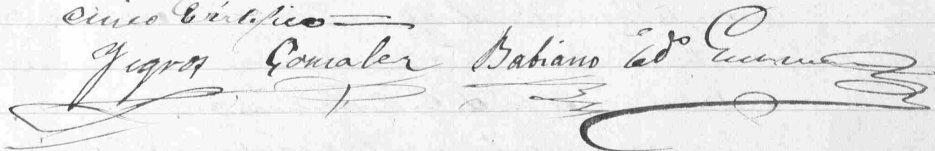 cinco Certifico
Yegros Gonzalez Babiano Edo